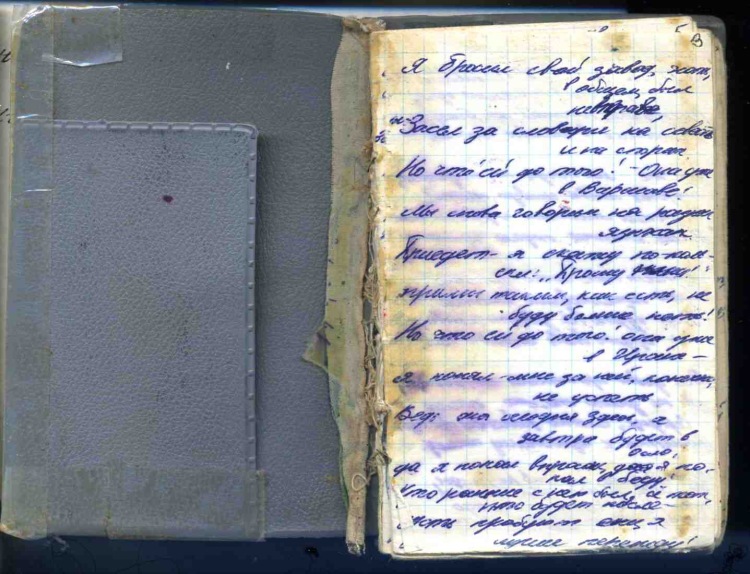 В
Я бросил свой завод, хоть,
в общем, был
не вправе,
Засел за словари на совесть
и на страх
Но что ей до того! - Она уж
в Варшаве!
Мы снова говорим на разных
языках.
Приедет - я скажу по-поль-
ски: "Прошу пани!
прими таким, как есть, не
буду больше петь!
Но что ей до того! она уже
в Иране -
я понял - мне за ней, конечно,
не успеть
Ведь она сегодня здесь, а
завтра будет в
Осло,
да я попал впросак, да я по-
пал в беду!
Кто раньше с нею был, и тот,
кто будет после -
пусть пробуют они я
лучше пережду!